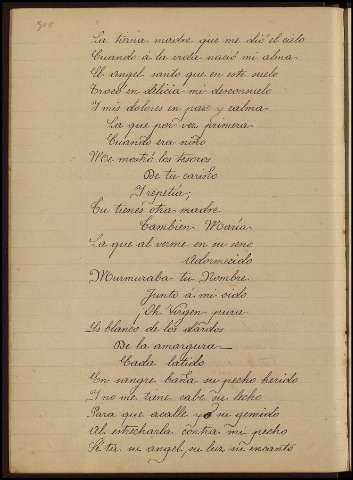 La tierna madre que me dió el cielo
Cuando á la vida nació mi alma
El angel santo que en este suelo
Trocó en delicia mi desconsuelo
Y mis dolores en paz y calma
La que por vez primera
Cuando era niño
Me mostró los tesoros
De tu cariño
Y repetía;
Tu tienes otra madre
Tambien María
La que al verme en su seno
Adormecido
Murmuraba tu Nombre
Junto á mi oido
Oh Virgen pura
Es blanco de los dardos
De la amargura
Cada latido
En sangre baña su pecho herido
Y no me tiene cabe su lecho
Para que acalle yo su gemido
Al estrecharla contra mi pecho
Sé tú su angel, su luz su encanto